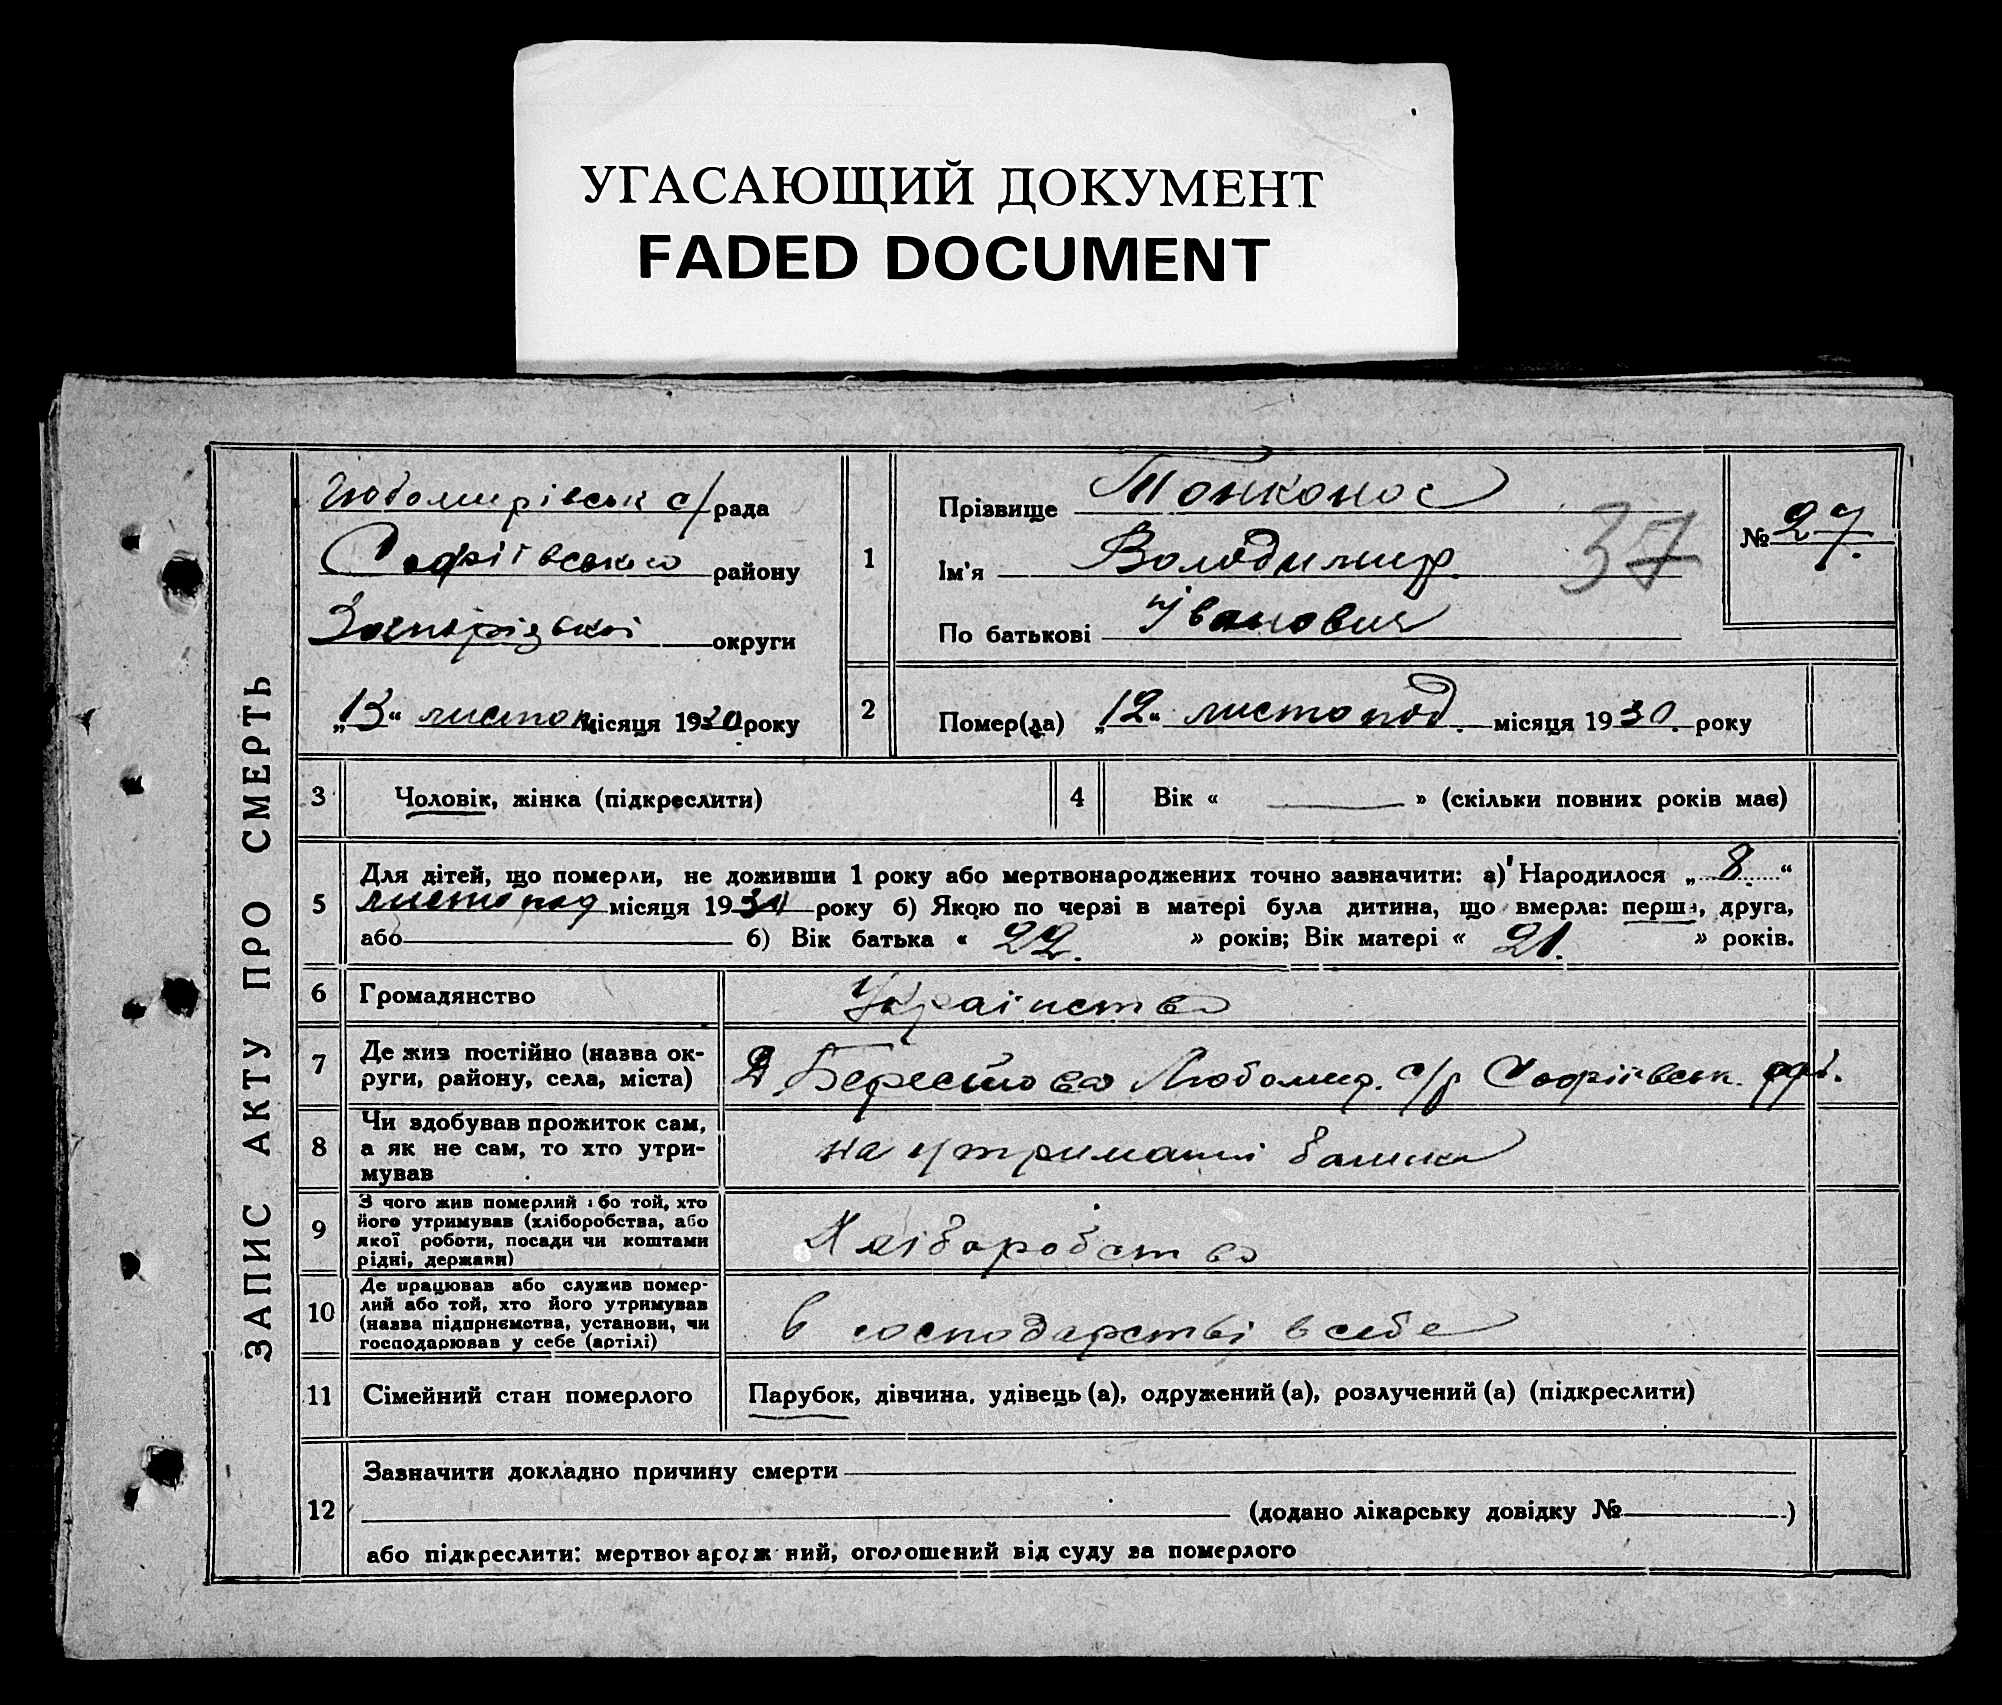 УГАСАЮЩИЙ ДОКУМЕНТ
FADED DOCUMENT
ЗАПИС АКТУ ПРО СМЕРТЬ
Любомирівськ с/рада
Софіївського району
Запорізької округи
„13“ листопа місяця 1930 року
1
Прізвище Тонконос
Ім'я Володимир
По батькові Іванович
37
№ 27.
2
Помер(ла) „12“ листопад. місяця 1930. року
3 Чоловік, жінка (підкреслити)
4 Вік « — » (скільки повних років мав)
5 Для дітей, що померли, не доживши 1 року або мертвонароджених точно зазначити: а) Народилося „8.“
листопад місяця 1930 року б) Якою по черзі в матері була дитина, що вмерла: перша, друга,
або — б) Вік батька « 22. » років; Вік матері « 21. » років.
6 Громадянство Українство
7 Де жив постійно (назва ок-
руги, району, села, міста)
Берестово Любомир. с/р Софіївськ.
8 Чи здобував прожиток сам,
а як не сам, то хто утри-
мував
на утриманні батька
9 З чого жив померлий або той, хто
його утримував (хліборобства, або
якої роботи, посади чи коштами
рідні, держави)
Хліборобство
10 Де працював або служив помер-
лий або той, хто його утримував
(назва підприємства, установи, чи
господарював у себе (артілі)
в господарстві в себе
11 Сімейний стан померлого Парубок, дівчина, удівець (а), одружений (а), розлучений (а) (підкреслити)
12 Зазначити докладно причину смерти
(додано лікарську довідку № )
або підкреслити: мертвонароджений, оголошений від суду за померлого